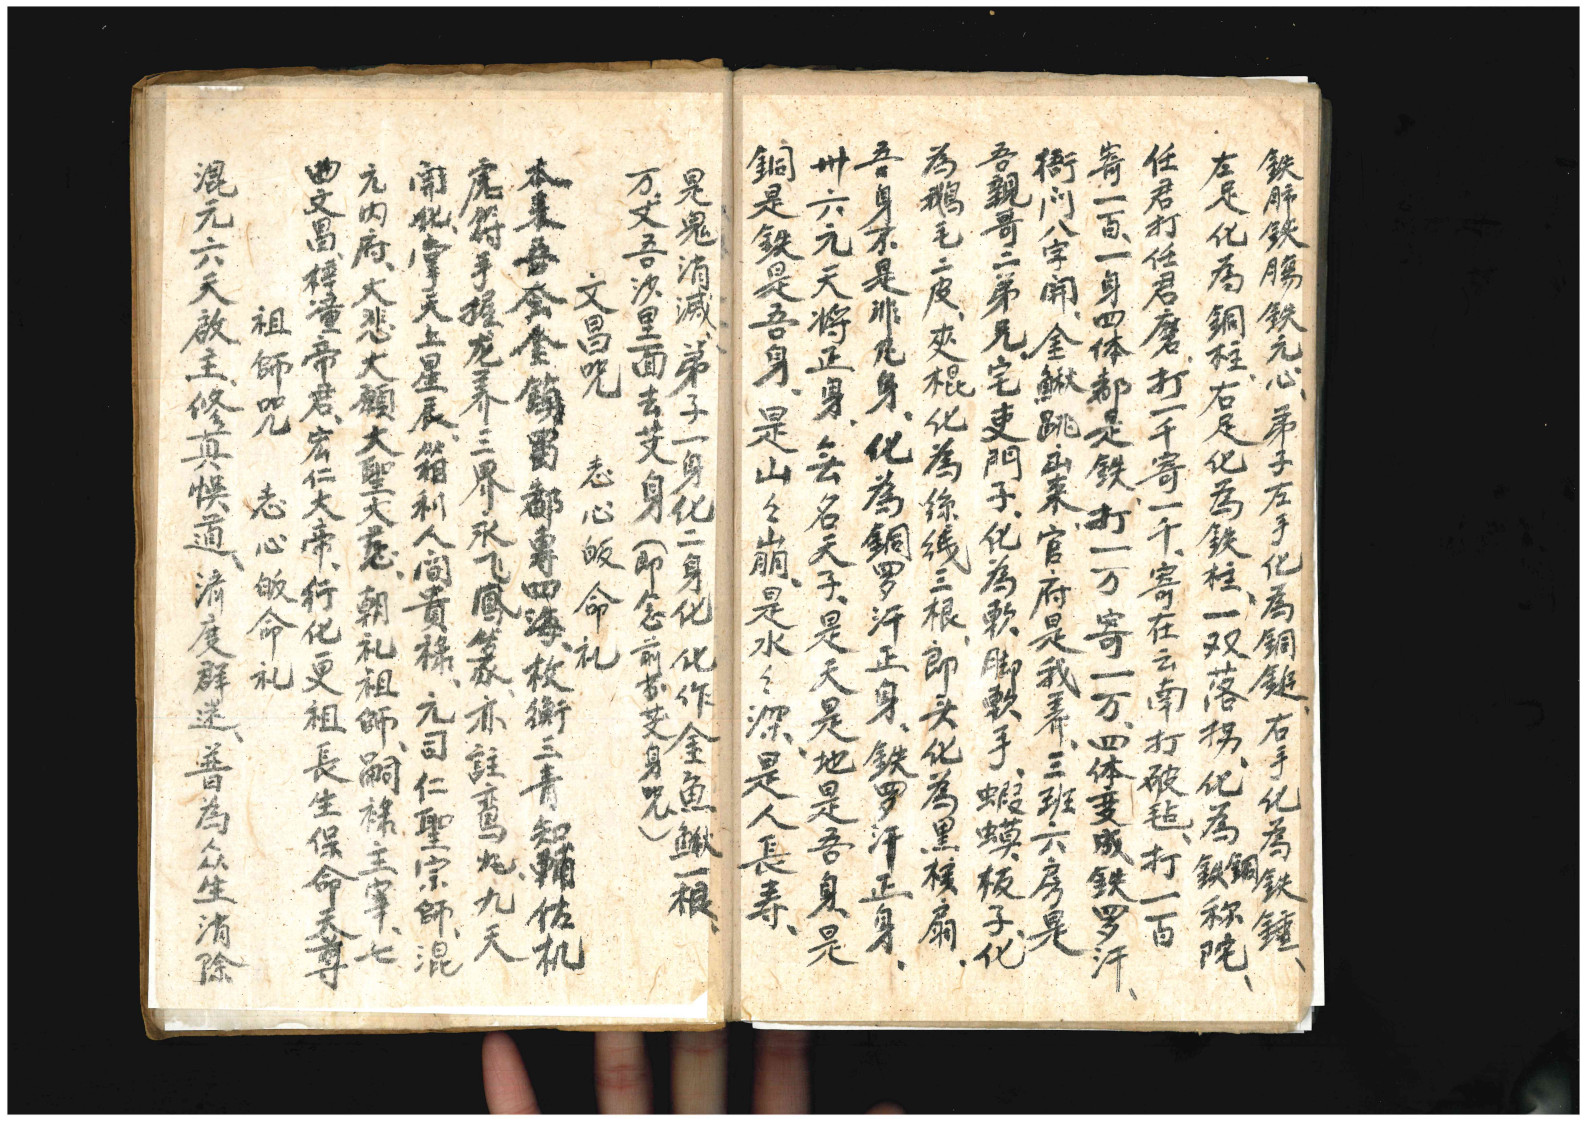 鉄肺鉄腸鉄元心、弟子左手化為銅鎚、右手化為鉄錘、
左足化為銅柱、右足化為鉄柱、一双落拐、化為鉄銅称陀、
任君打任君磨、打一千寄一千、寄在云南打破毡、打一百
寄一百、一身四体都是鉄、打一万寄一万、四体变成鉄罗汗、
衙门八字開、金鰍跳出来、官府是我弟、三班六房是
吾親哥二弟兄、宅吏門子、化為軟、脚軟手、蝦蟆板子、化
為鵝毛二皮、夾棍化為絲线三根、郎头化為黑樸扇、
吾身不是非凡身、化為銅罗汗正身、鉄罗汗正身、
卅六元天将正身、無名天子、是天是地是吾身、是
銅是鉄是吾身、是山々崩、是水々深、是人長寿、
是鬼消滅、弟子一身化二身化 化作金魚鰍一根、
万丈吾沙里面去芆身（即念前芆身咒）
文昌咒 志心皈命礼
本来吾 金 蜀都專四海、枚衡三青 知輔佐机
虎符手握龙 三界永飞鳳篆、亦註鸞 、九天
開化、掌天上星辰、箱利人間貴禄、元司仁聖宗師、混
元内府、大悲大願大聖大慈、朝礼祖師、嗣禄主宰、七
曲文昌、梓潼帝君、宏仁大帝、行化更祖長生保命天尊
祖師咒 志心皈命礼
混元六天啟主、修真悞道、済度群迷、普為众生消除